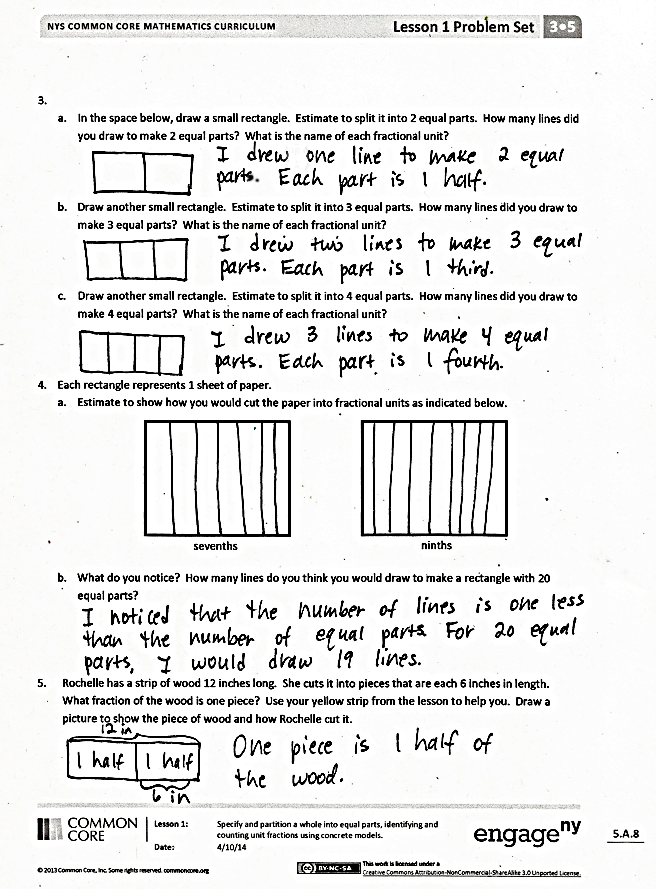 NYS COMMON CORE MATHEMATICS CURRICULUM Lesson 1 Problem Set 3•5
3.
a. In the space below, draw a small rectangle. Estimate to split it into 2 equal parts. How many lines did
you draw to make 2 equal parts? What is the name of each fractional unit?
I drew one line to make 2 equal
parts. Each part is 1 half.
b. Draw another small rectangle. Estimate to split it into 3 equal parts. How many lines did you draw to
make 3 equal parts? What is the name of each fractional unit?
I drew two lines to make 3 equal
parts. Each part is 1 third.
c. Draw another small rectangle. Estimate to split it into 4 equal parts. How many lines did you draw to
make 4 equal parts? What is the name of each fractional unit?
I drew 3 lines to make 4 equal
parts. Each part is 1 fourth.
4. Each rectangle represents 1 sheet of paper.
a. Estimate to show how you would cut the paper into fractional units as indicated below.
sevenths ninths
b. What do you notice? How many lines do you think you would draw to make a rectangle with 20
equal parts?
I noticed that the number of lines is one less
than the number of equal parts. For 20 equal
parts, I would draw 19 lines.
5. Rochelle has a strip of wood 12 inches long. She cuts it into pieces that are each 6 inches in length.
What fraction of the wood is one piece? Use your yellow strip from the lesson to help you. Draw a
picture to show the piece of wood and how Rochelle cut it.
12 in
1 half 1 half
6 in
One piece is 1 half of
the wood.
COMMON CORE
Lesson 1: Specify and partition a whole into equal parts, identifying and
counting unit fractions using concrete models.
Date: 4/10/14
engage ny
5.A.8
© 2013 Common Core, Inc. Some rights reserved. commoncore.org
(cc) BY-NC-SA This work is licensed under a
Creative Commons Attribution-NonCommercial-ShareAlike 3.0 Unported License.